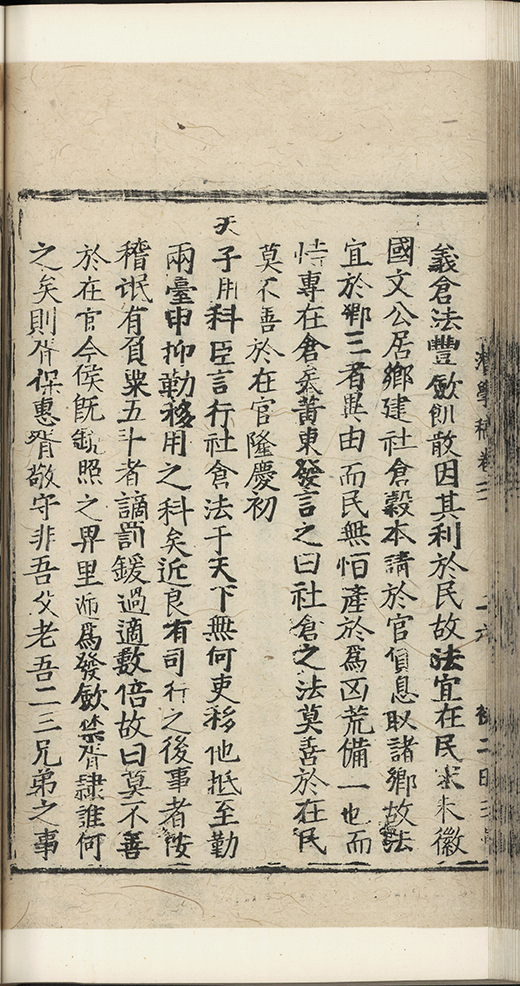 義倉法豐歛飢散因其利於民故法宜在民宋朱徽
國文公居鄉建社倉穀本請於官償息取諸鄉故法
宜於鄉三者異由而民無怕產於爲凶荒備一也而
恃專在倉蔡莆東發言之曰社倉之法莫善於在民
莫不善於在官隆慶初
天子用科臣言行社倉法于天下無何吏移他抵至勤
兩臺申抑勒移用之科矣近良有司行之後事者按
稽氓有負粟五斗者謫罰鍰過適數倍故曰莫不善
於在官今侯旣銳照之界里師爲發歛禁胥隷誰何
之矣則胥保惠胥敬守非吾父老吾二三兄弟之事
學稿卷